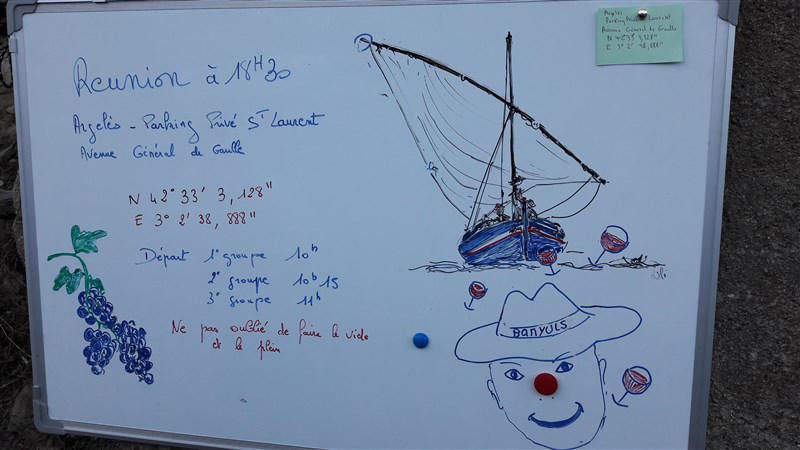 Réunion à 18H30
Argelès - Parking Privé ST Laurent
Avenue Général de Gaulle
N 42° 33' 3,128"
E 3° 2' 38,888"
Départ 1° groupe 10h
2° groupe 10h15
3° groupe 11h
Ne pas oublié de faire le vide
et le plein
BANYULS
Argelès
Parking Privé St Laurent
Avenue Général de Gaulle
N 42° 33' 3,128"
E 3° 2' 38,888"